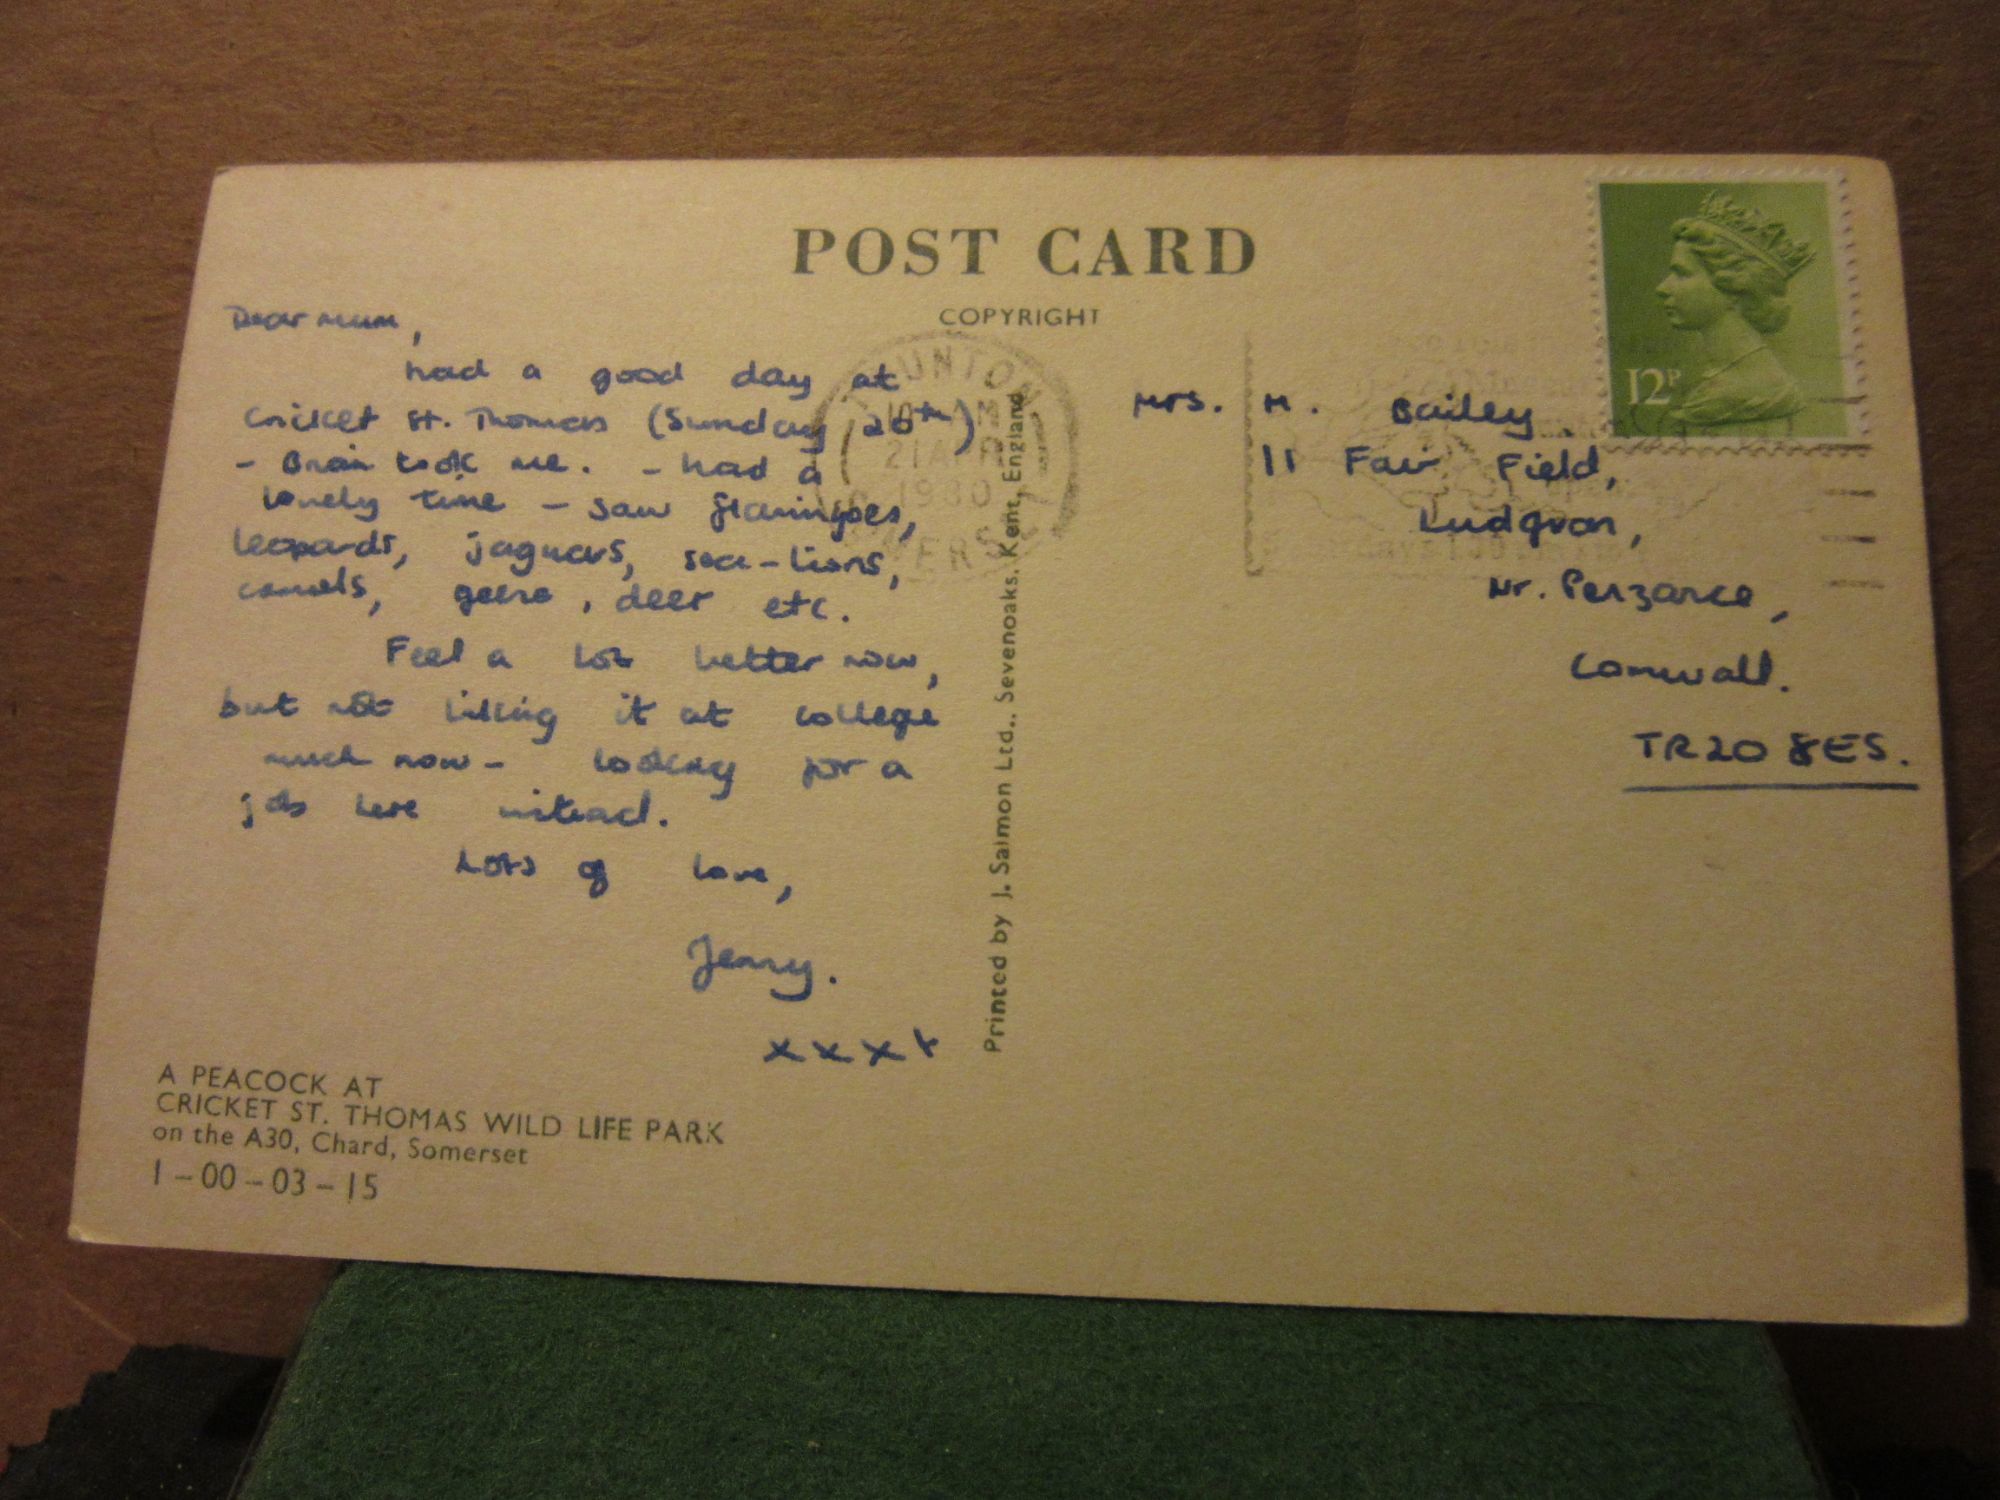 POST CARD
COPYRIGHT
Dear Mum,
had a good day at
Cricket St. Thomas (Sunday 20th)
- Brian took me. - had a
lovely time - saw flamingoes,
leopards, jaguars, sea-lions,
camels, geese, deer etc.
Feel a lot better now,
but not liking it at college
much now - looking for a
job here instead.
Lots of love,
Jenny.
xxxx
A PEACOCK AT
CRICKET ST. THOMAS WILD LIFE PARK
on the A30, Chard, Somerset
1-00-03-15
Printed by J. Salmon Ltd., Sevenoaks, Kent, England
TAUNTON
21 APR
1980
SOMERSET
12P
Mrs. M. Bailey
11 Fair Field,
Ludgvan,
Nr. Penzance,
Cornwall.
TR20 8ES.